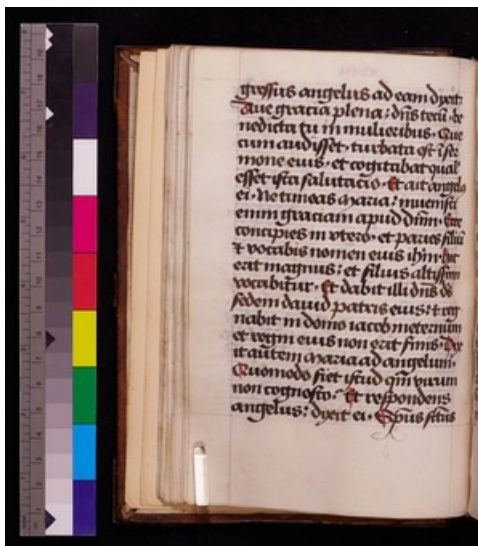 gressus angelus ad eam dixit:
Aue gracia plena: dn̄s tecū. be
nedicta tu in mulieribus. Que
cum audisset. turbata est ī ser
mone eius. et cogitabat qual'
esset ista salutacio. Et ait angelꝰ
ei. Ne timeas maria: inuenisti
enim graciam apud dūm. Ecce
concipies in vtero. et paries filiū
⁊ vocabis nomen eius ihm̄. hic
erit magnus: et filius altissimi
vocabitur. Et dabit illi dn̄s ds̄
sedem dauid patris eius: ⁊ reg
nabit in domo iacob ineternum
et regni eius non erit finis. Dix
it autem maria ad angelum.
Quomodo fiet istud qm̄ virum
non cognosco. Et respondens
angelus: dixit ei. Sp̄us sctūs